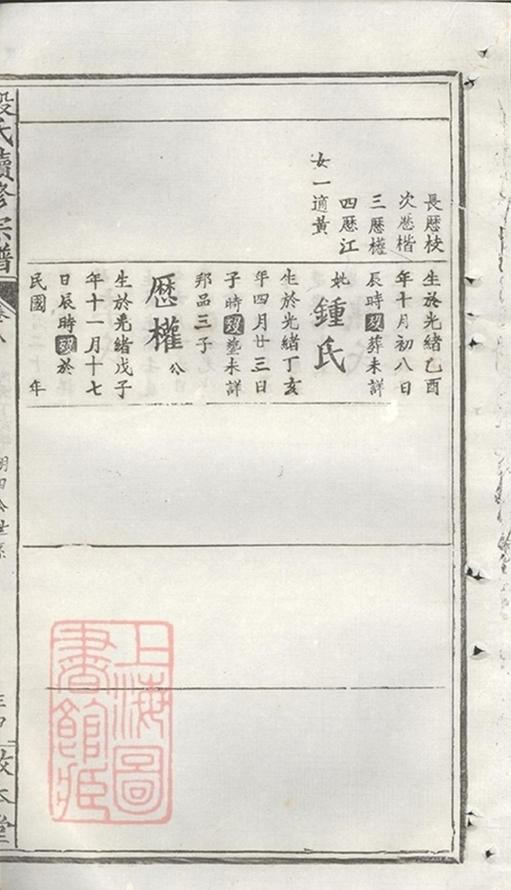 長歷枝
次歷楷
三歷權
四歷江
女一適黃
生於光緒乙酉
年十月初八日
辰時歿葬未詳
妣鍾氏
生於光緒丁亥
年四月廿三日
子時歿塟未詳
邦品三子
歷權 公
生於光緒戊子
年十一月十七
日辰時歿於
民國 年
段氏續修宗譜
卷八
敬本堂
上海圖
書館藏